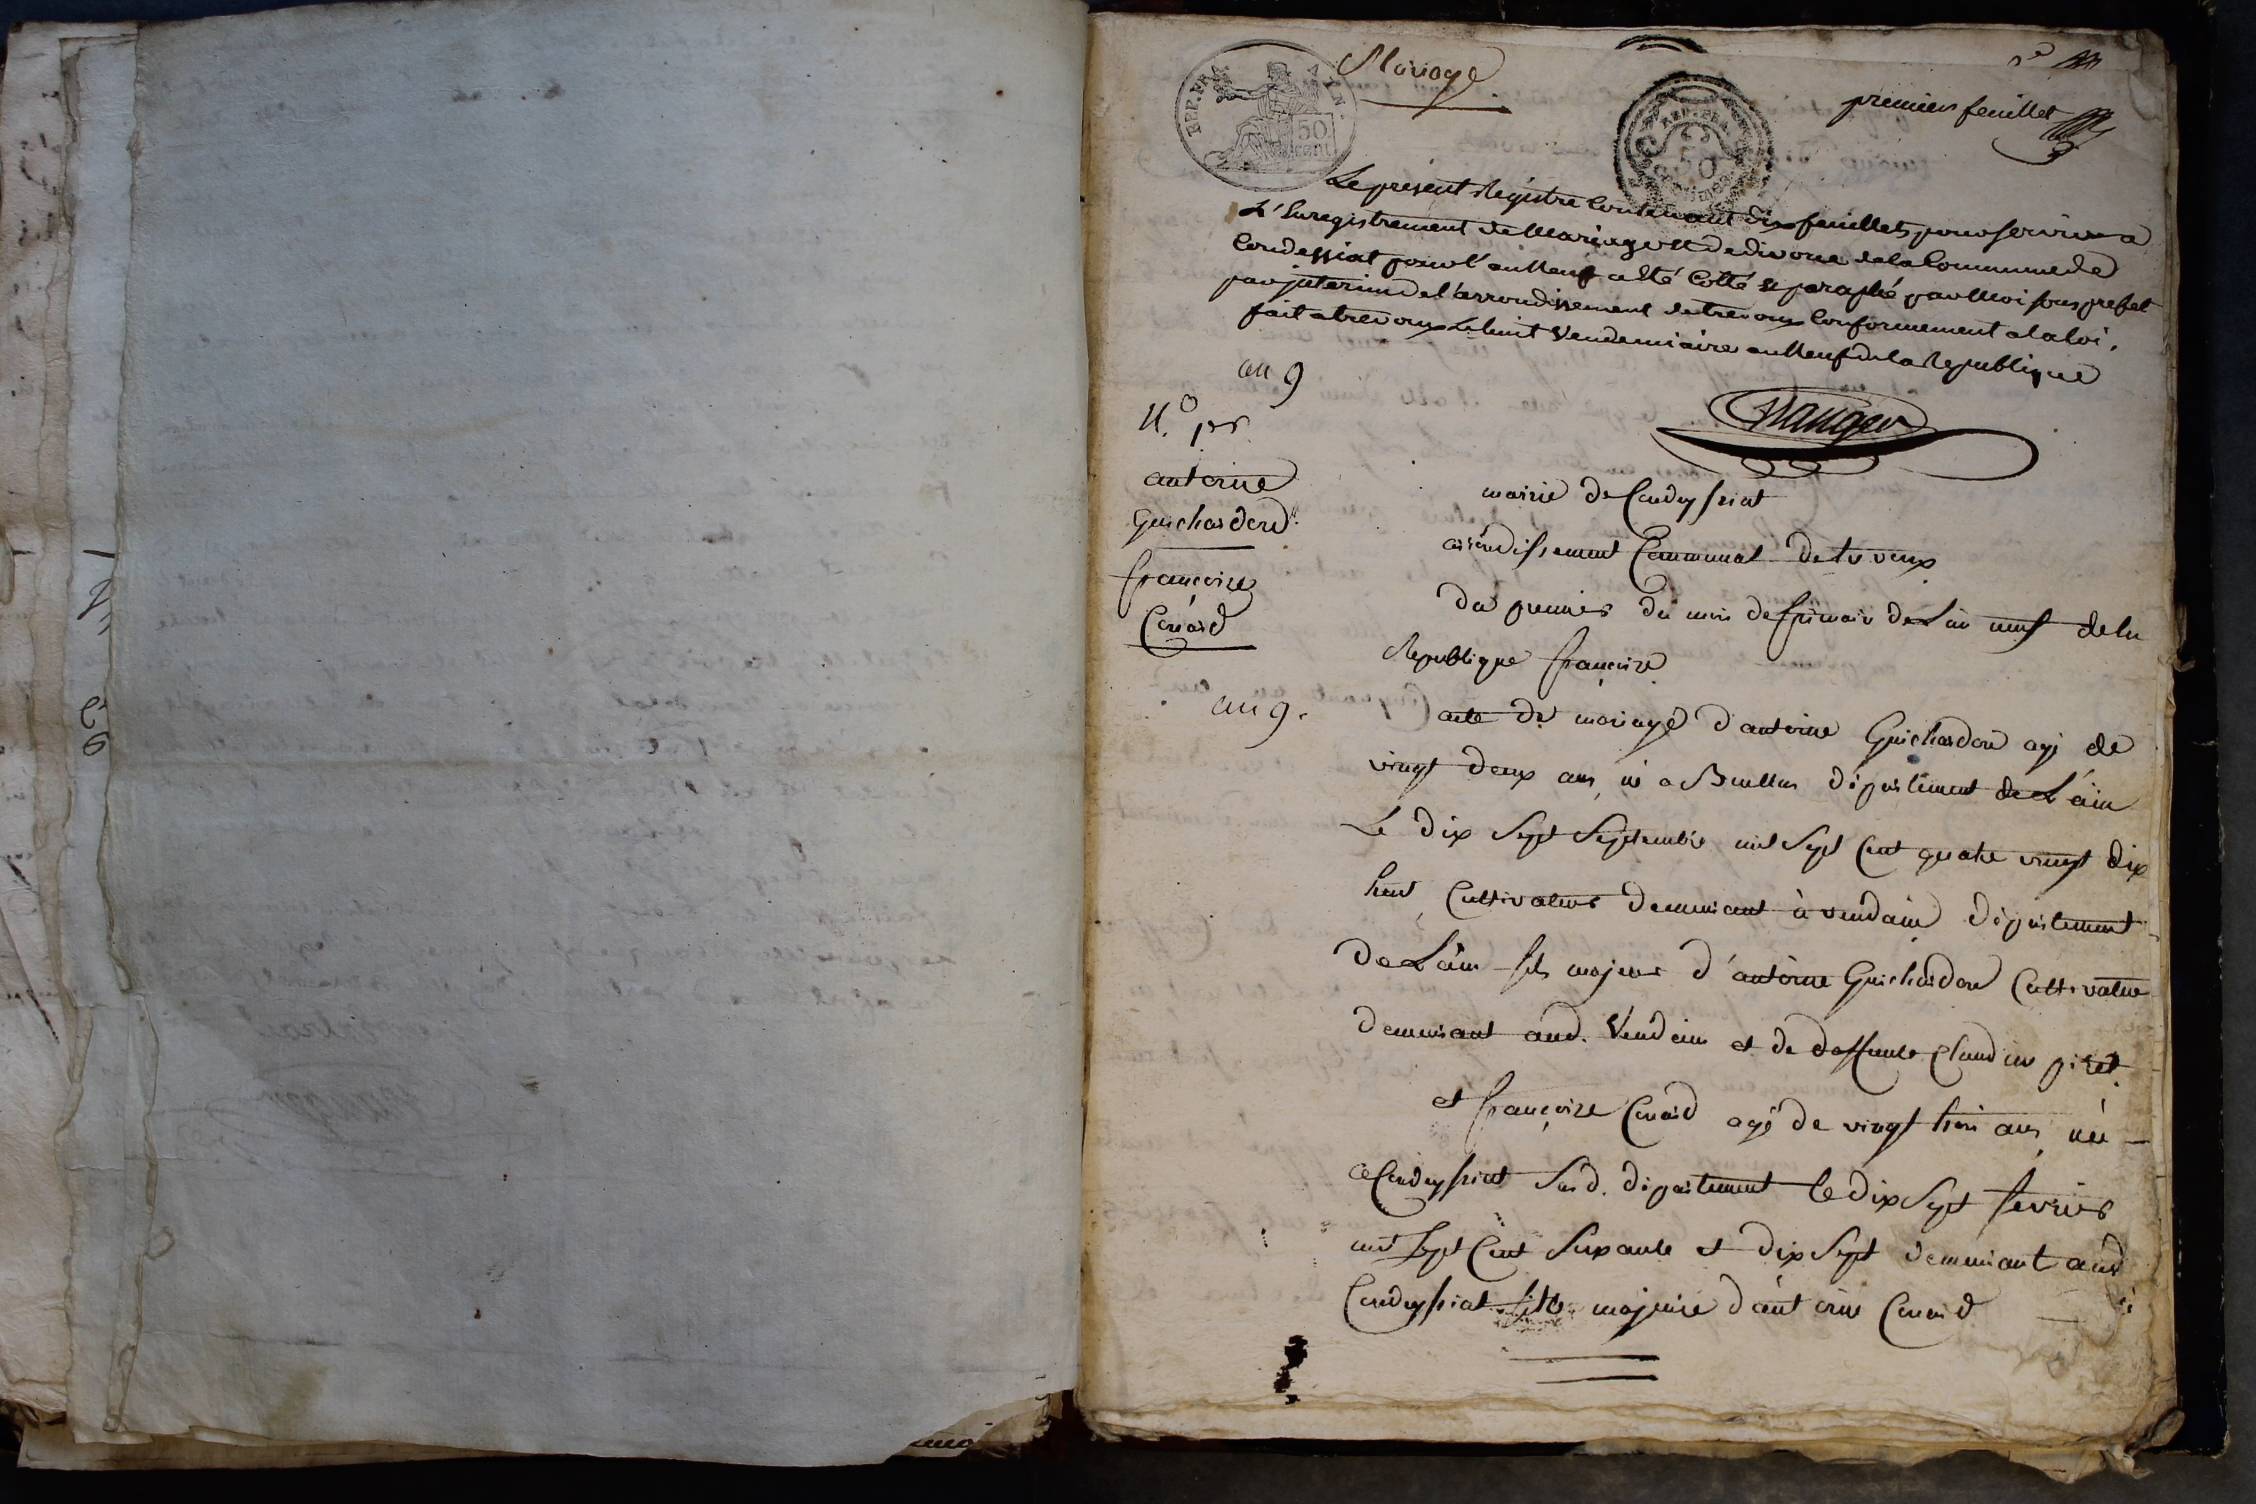 Mariage
premier feuillet
REP. FRA.
50
cent.
REP. FRA.
50
Le présent Régistre Contenant dix feuillets pour servir a
L'Enregistrement de Mariage et de divorce de la Commune de
Condeissiat pour l'an Neuf a été Cotté et paraphé par Moi sous prefet
par interim de l'arrondissement de trevoux Conformement a la loi,
fait a trevoux Le huit Vendemiaire an Neuf de la Republique
an 9
N.º 1er
antoine
Guichardon
françoise
Conard
mairie de Condeyssiat
arrondissement Communal de trevoux
du premier du mois de frimair de L'an neuf de la
Republique françoise
an 9.
acte de mariage d'antoine Guichardon agé de
vingt deux ans, né a département de L'ain
Le dix Sept Septembre mil Sept Cent quatre vingt dix
huit Cultivateur demeurant à vendain département
de L'ain fils majeur d'antoine Guichardon Cultivateur
demeurant aud. Vendein et de deffunte Claudine
et françoise Conard agé de vingt trois ans, née
a Condeyssiat Sus d. département le dix Sept fevrier
mil Sept Cent Soixante et dix Sept demeurant aud
Condeyssiat fille majeure d'antoine Conard